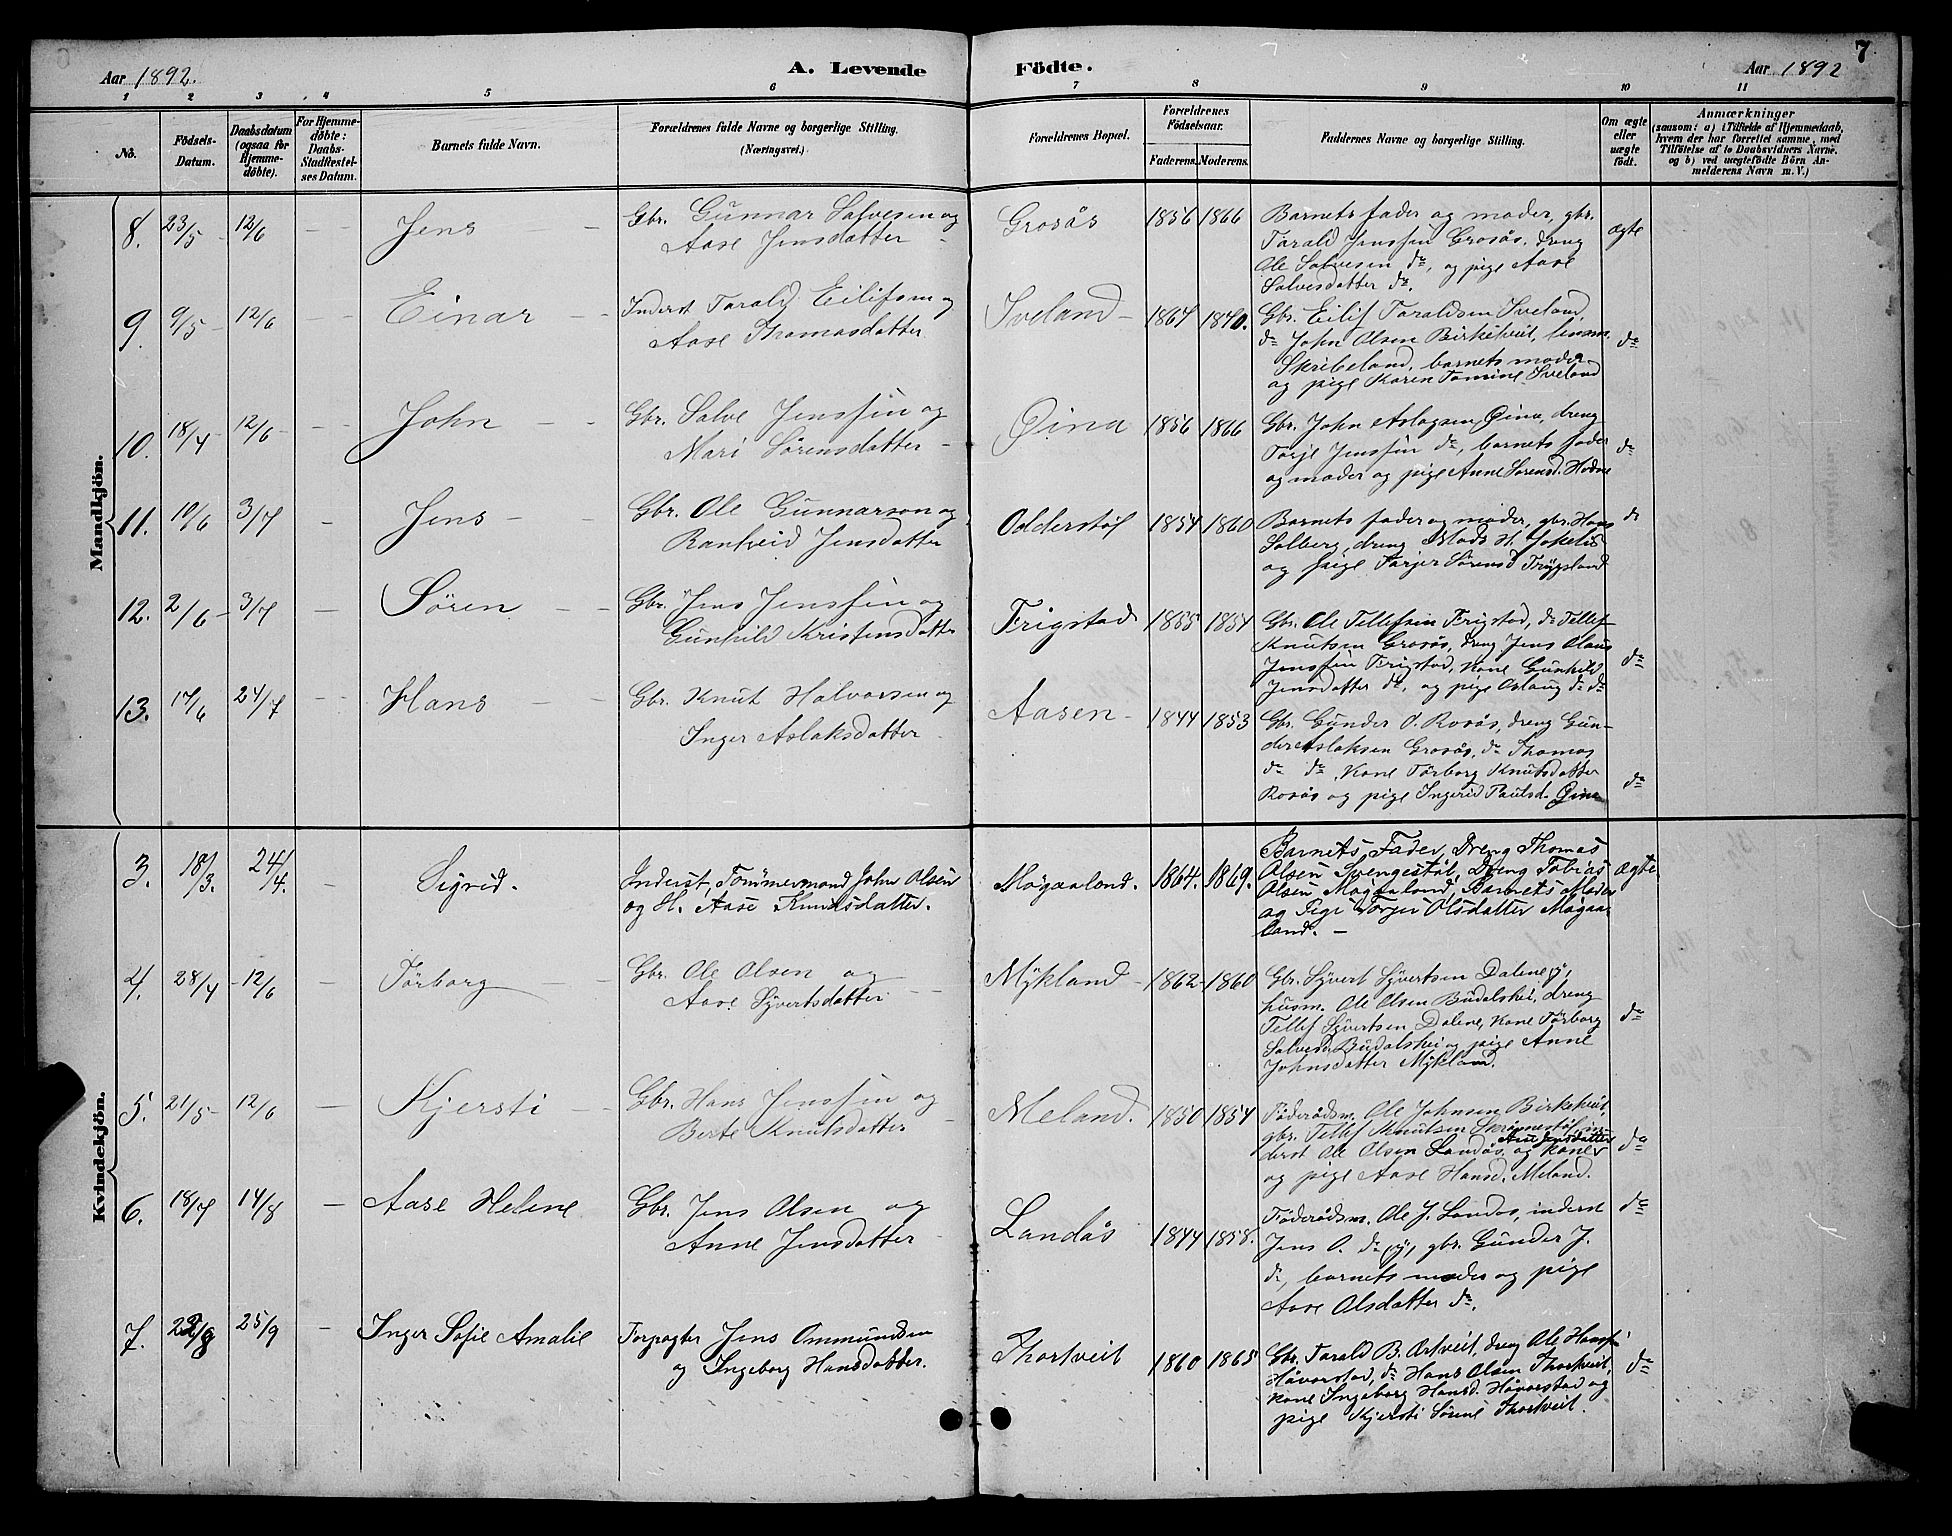 Aar 1892.
A. Levende Födte.
Aar 1892
7
1 2 3 4 5 6 7 8 9 10 11
No.
Födsels-Datum.
Daabsdatum (ogsaa for Hjemmedøbte).
For Hjemmedøbte: Daabs-Stadfæstelses Datum.
Barnets fulde Navn.
Forældrenes fulde Navne og borgerlige Stilling.
(Næringsvei.)
Forældrenes Bopæl.
Forældrenes Födselsaar.
Faderens. Moderens.
Faddernes Navne og borgerlige Stilling.
Om ægte eller uægte født.
Anmærkninger
(saasom: a) i Tilfælde af Hjemmedaab,
hvem der har forrettet samme, med
Tilføielse af to Daabsvidners Navne,
og b) ved uægtefødte Børn Anmelderens Navn m. V.)
Mandkjön.
8. 23/5 12/6 — Jens — Gbr. Gunnar Salvesen og
Aase Jensdatter — Grosås 1856 1866
Barnets fader og moder, gbr.
Tarald Jenssøn Grosås, dreng
Ole Salvesen do, og pige Aase
Salvesdatter do. ægte
9. 9/5 12/6 — Einar — Inderst Tarald Eilifsen og
Aase Thomasdatter — Iveland 1864 1840.
Gbr. Eilif Taraldsen Iveland,
do John Olsen Birketveit, husm.
Skribeland, barnets moder
og pige Karen Tomine Iveland do
10. 18/4 12/6 — John — Gbr. Salve Jenssøn og
Mari Sørensdatter — Øina 1856 1866
Gbr. John Aslagsen Øina, dreng
Torje Jenssøn do, barnets fader
og moder og pige Anne Sørensd. Hodne do
11. 10/6 3/7 — Jens — Gbr. Ole Gunnarson og
Ranveid Jensdatter Odderstøl 1854 1860
Barnets fader og moder, gbr. Hans
Solberg, dreng Mads H.
og pige Torjer Sørensd do
12. 2/6 3/7 — Sören — Gbr. Jens Jenssøn og
Gunhild Kristensdatter Frigstad 1855 1854
Gbr. Ole Tellefsen Frigstad, do Tellef
Knutsen Grosås, dreng Jens Olaus
Jenssøn Frigstad, kone Gunhild
Jensdatter do, og pige Aslaug do do do
13. 17/6 24/7 — Hans — Gbr. Knut Halvorsen og
Inger Aslaksdatter — Aasen 1844 1853
Gbr. Gunder O. Rosås, dreng Gun-
der Aslaksen Grosås, do Thomas
do do, kone Törborg Knutsdatter
Rosås og pige Ingerid Paulsd. Øina do
Kvindekjön.
3. 18/3. 24/4. — Sigrid. Inderst, Tømmermand John Olsen
og H. Aase Knudsdatter. Mögaaland. 1864. 1869.
Barnets Fader, Dreng Thomas
Olsen Svengestøl, Dreng Tobias
Olsen Mögaaland, Barnets Moder
og Pige Torjer Olsdatter Mögaa-
land. — ægte
4. 28/4 12/6 — Törborg — Gbr. Ole Olsen og
Aase Syvertsdatter — Mykland 1862 1860
Gbr. Syvert Syvertsen Dalene,
husm. Ole Olsen Budalshei, dreng
Tellef Syvertsen Dalene, kone Törborg
Salvesd. Budalshei og pige Anne
Johnsdatter Mykland. do
5. 21/5 12/6 — Kjersti — Gbr. Hans Jenssøn og
Berte Knutsdatter — Meland. 1850 1854
Föderådsm. Ole Johnsen Birketveit,
gbr. Tellef Knutsen Skripnestøl, in-
derst Ole Olsen Landås, og kone Aase Jensdatter
og pige Aase Hansd. Meland. do
6. 18/7 14/8 — Aase Helene Gbr. Jens Olsen og
Anne Jensdatter — Landås 1844 1858.
Föderådsm. Ole J. Landås, inderst
Jens O. do, gbr. Gunder J.
do, barnets moder og pige
Aase Olsdatter do. do
7. 22/8 25/9 — Inger Sofie Amalie Forpagter Jens Ommundsen
og Ingeborg Hansdatter. Thortveit 1860 1865
Gbr. Tarald B. Artveit, dreng Ole Hanssøn
Håverstad, do Hans Olsen Thortveit,
kone Ingeborg Hansd. Håverstad og
pige Kjersti Sørine Thortveit. do